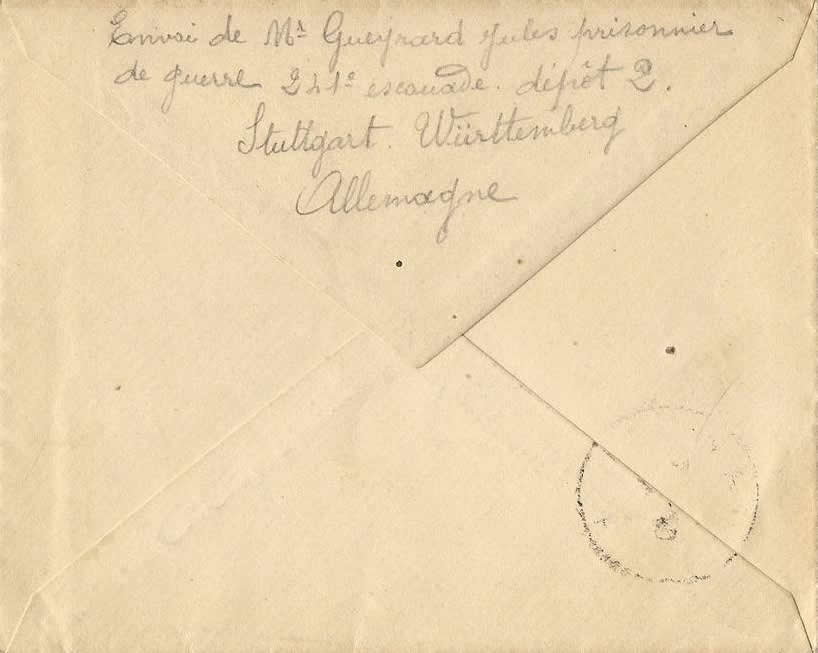 Envoi de Mr Gueyrard Jules prisonnier
de guerre 241e escouade. dépôt 2.
Stuttgart. Württemberg
Allemagne